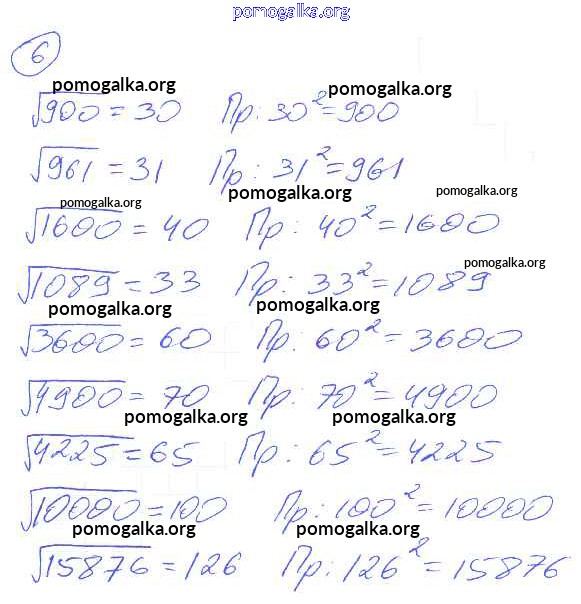 pomogalka.org
6
pomogalka.org pomogalka.org
√900 = 30 Пр: 30² = 900
√961 = 31 Пр: 31² = 961
pomogalka.org pomogalka.org pomogalka.org
√1600 = 40 Пр: 40² = 1600
pomogalka.org
√1089 = 33 Пр: 33² = 1089
pomogalka.org pomogalka.org
√3600 = 60 Пр: 60² = 3600
√4900 = 70 Пр: 70² = 4900
pomogalka.org pomogalka.org
√4225 = 65 Пр: 65² = 4225
√10000 = 100 Пр: 100² = 10000
pomogalka.org pomogalka.org
√15876 = 126 Пр: 126² = 15876